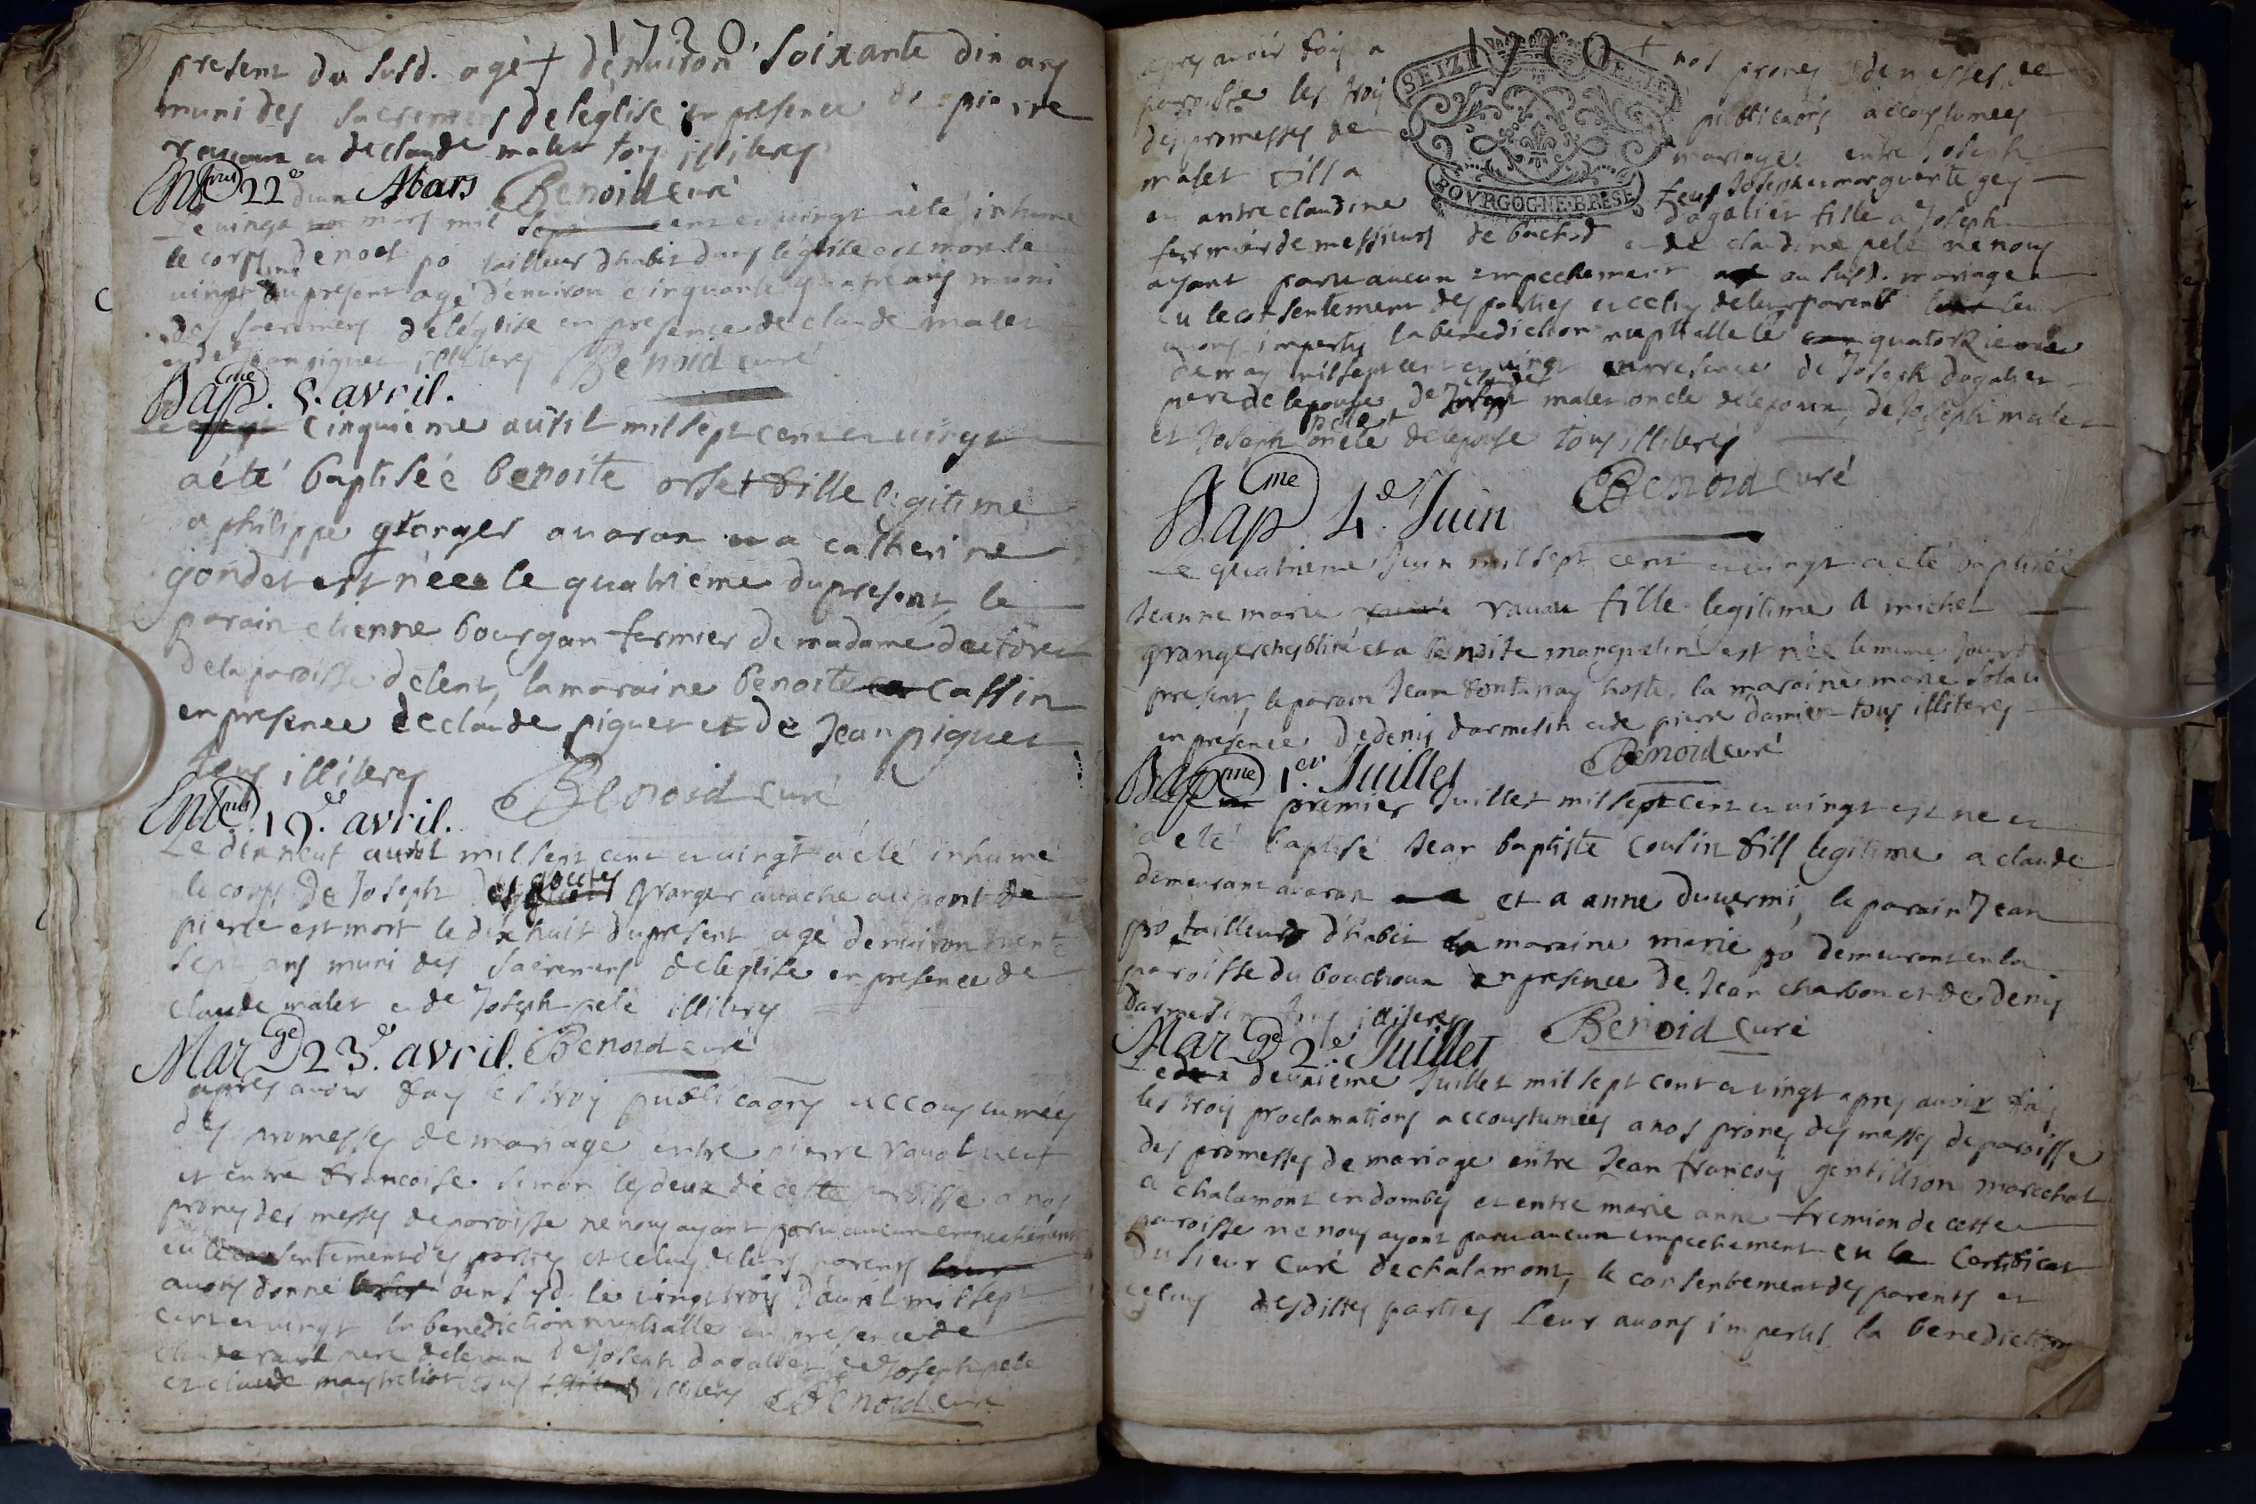 1720
present du susd. agé d'enuiron soixante dix ans
muni des sacremens de l'église en presence de pierre
et de claude malet tous illiteres
Ent.rre 22e d'un Mars Benoid curé
le vingt mars mil sept cent et vingt a été inhumé
le corps de noel po tailleur d'habit dans l'église est mort le
vingt un present agé d'enuiron cinquante quatre ans muni
des sacremens de l'église en presence de claude malet
et de jean piguet illiteres Benoid curé
Bap.me 5. avril.
cinquieme auril mil sept cent et vingt
a été baptisée benoite orset fille legitime
a philippe granger a varan a catherine
gondet est néee le quatrieme du present, le
parain etienne bourgan fermier de madame
de la paroisse de lent, la maraine benoite cassin
en presence de claude piguet et de Jean piguet
tous illiteres Benoid curé
Ent.rre 19.e avril.
Le dix neuf auril mil sept cent et vingt a été inhumé
le corps de Joseph des gouttes granger a vache au pont de
pierre est mort le dix huit du present agé d'enuiron trente
sept ans muni des sacremens de l'eglise en presence de
claude malet et de Joseph pelé illiteres
Mar.ge 23.e avril. Benoid curé
apres avoir fay les trois publicaons accoustumées
des promesses de mariage entre pierre
et entre francoise simon les deux de cette paroisse a nos
prones des messes de paroisse ne nous ayant paru aucun empechement
eu le consentement des parties et celuy de leurs parens
auons donné aux susd. le vingt trois d'auril mil sept
cent et vingt la benediction nuptialle en presence de
claude pere de l'epoux de Joseph dagallier et de Joseph pelé
et claude tous illiteres Benoid curé
1720
SEIZE
BOVRGOGNE·BRESSE
apres avoir fay a nos prones de messes de
paroisse les trois publicaons accoustumées
des promesses de mariage entre Joseph
malet fils a feus Joseph et marguerite gey
et entre claudine dagalier fille a Joseph
fermier de messieurs de bachod et de claudine pelé ne nous
ayant paru aucun empechement au susd. mariage
eu le consentement des parties et celuy de leur parents leur
auons impertis la benediction nuptialle le quatorzieme
de may mil sept cent et vingt en presence de Joseph dagalier
pere de l'epouse de claude malet oncle de l'epoux, de Joseph malet
et Joseph pelet oncle de l'epouse tous illiterés
Benoid curé
Bap.me 4.e Juin
Le quatrieme Juin mil sept cent et vingt a été baptisée
Jeanne marie rauau fille legitime a michel
granger et a benoite marquelin est née le meme jour du
present, le parain Jean fontenay hoste, la maraine marie
en presence de denis darmesin et de pierre damien tous illiteres
Benoid curé
Bap.me 1.er Juillet
premier Juillet mil sept cent et vingt est ne et
a eté baptisé Jean baptiste cousin fils legitime a claude
demeurant a varan et a anne duuermi, le parain Jean
po tailleur d'habit la maraine marie po demeurant en la
paroisse du bouchoux en presence de Jean charbon et de denis
darmesin tous illiteres Benoid curé
Mar.ge 2.e Juillet
Le deuxieme Juillet mil sept cent et vingt apres avoir fay
les trois proclamations accoustumées a nos prones des messes de paroisse
des promesses de mariage entre Jean francois gentillion marechal
a chalamont en dombes et entre marie anne tremion de cette
paroisse ne nous ayant paru aucun empechement eu le certificat
du sieur curé de chalamont, le consentement des parents et
celuy desdittes parties leur auons impertis la benediction